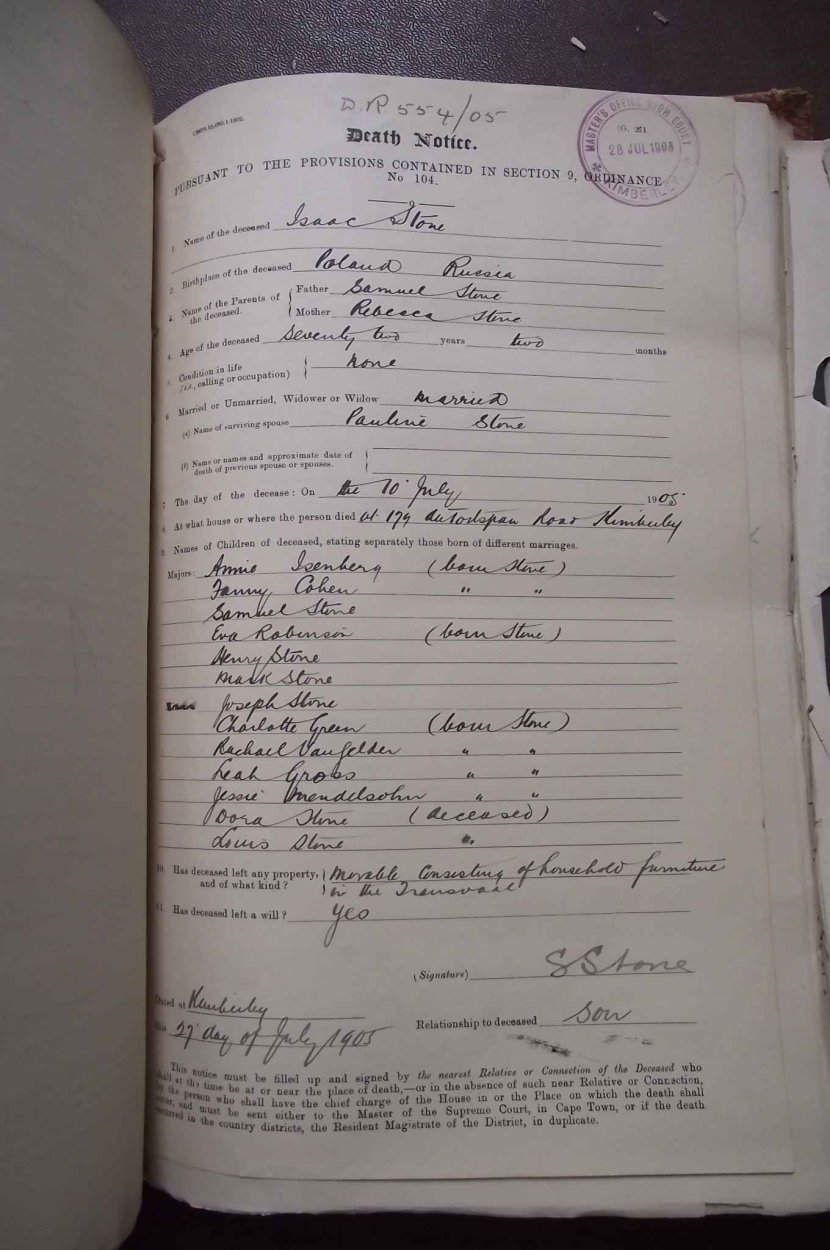 D.R 554/05
[G. 271.
MASTER'S OFFICE HIGH COURT
28 JUL 1905
KIMBERLEY.
Death Notice.
PURSUANT TO THE PROVISIONS CONTAINED IN SECTION 9, ORDINANCE
No 104.
1. Name of the deceased Isaac Stone
2. Birthplace of the deceased Poland Russia
3. Name of the Parents of the deceased. { Father Samuel Stone
Mother Rebecca Stone
4. Age of the deceased Seventy two years two months
5. Condition in life (i.e., calling or occupation) } none
6. Married or Unmarried, Widower or Widow married
(a) Name of surviving spouse Pauline Stone
(b) Name or names and approximate date of
death of previous spouse or spouses.
7. The day of the decease: On the 10 July 1905
8. At what house or where the person died at 179 Dutoitspan Road Kimberley
9. Names of Children of deceased, stating separately those born of different marriages.
Majors: Annie Isenberg (born Stone)
Fanny Cohen " "
Samuel Stone
Eva Robinson (born Stone)
Henry Stone
Mark Stone
Joseph Stone
Charlotte Green (born Stone)
Rachael Vangelder " "
Leah Gross " "
Jessie Mendelsohn " "
Dora Stone (deceased)
Louis Stone "
10. Has deceased left any property, } Movable Consisting of household furniture
and of what kind? } in the Transvaal
11. Has deceased left a will? Yes
(Signature) S Stone
Dated at Kimberley
this 27 day of July 1905
Relationship to deceased Son
This notice must be filled up and signed by the nearest Relative or Connection of the Deceased who
shall at the time be at or near the place of death,—or in the absence of such near Relative or Connection,
by the person who shall have the chief charge of the House in or the Place on which the death shall
occur, and must be sent either to the Master of the Supreme Court, in Cape Town, or if the death
occurred in the country districts, the Resident Magistrate of the District, in duplicate.